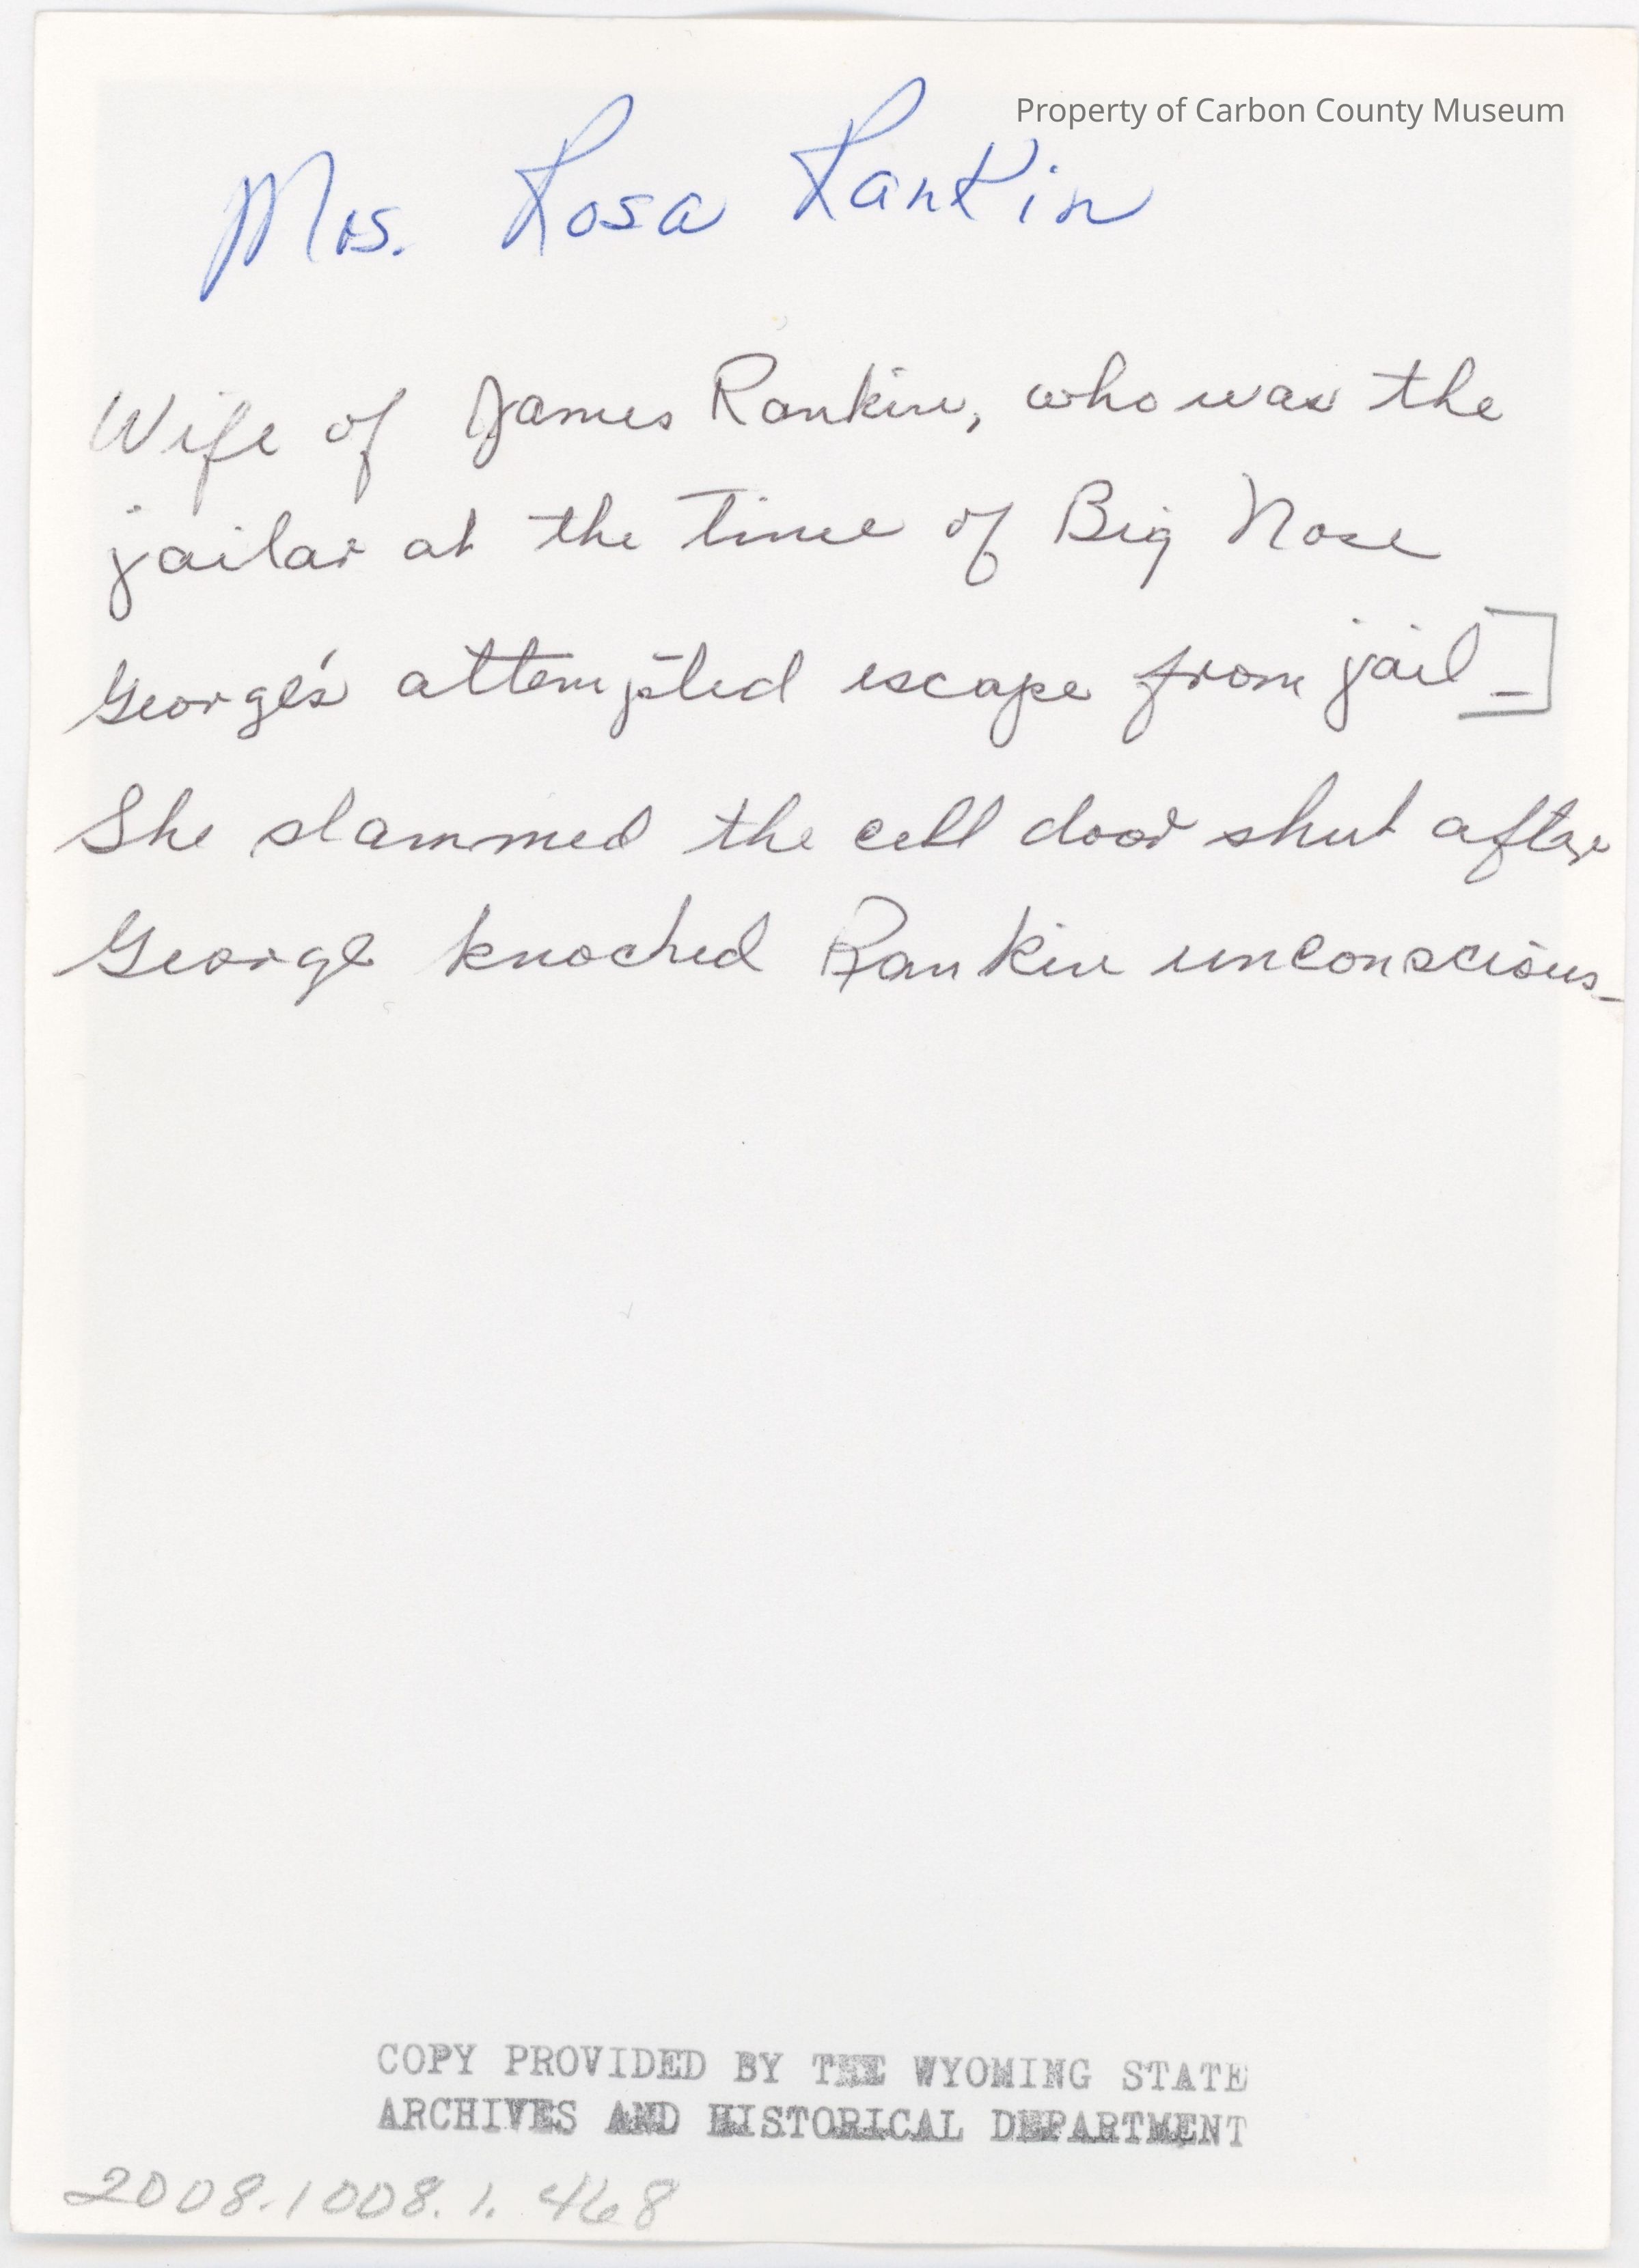 Property of Carbon County Museum
Mrs. Rosa Rankin
Wife of James Rankin, who was the
jailar at the time of Big Nose
George's attempted escape from jail_]
She slammed the cell door shut after
George knocked Rankin unconscious_
COPY PROVIDED BY THE WYOMING STATE
ARCHIVES AND HISTORICAL DEPARTMENT
2008.1008.1.468